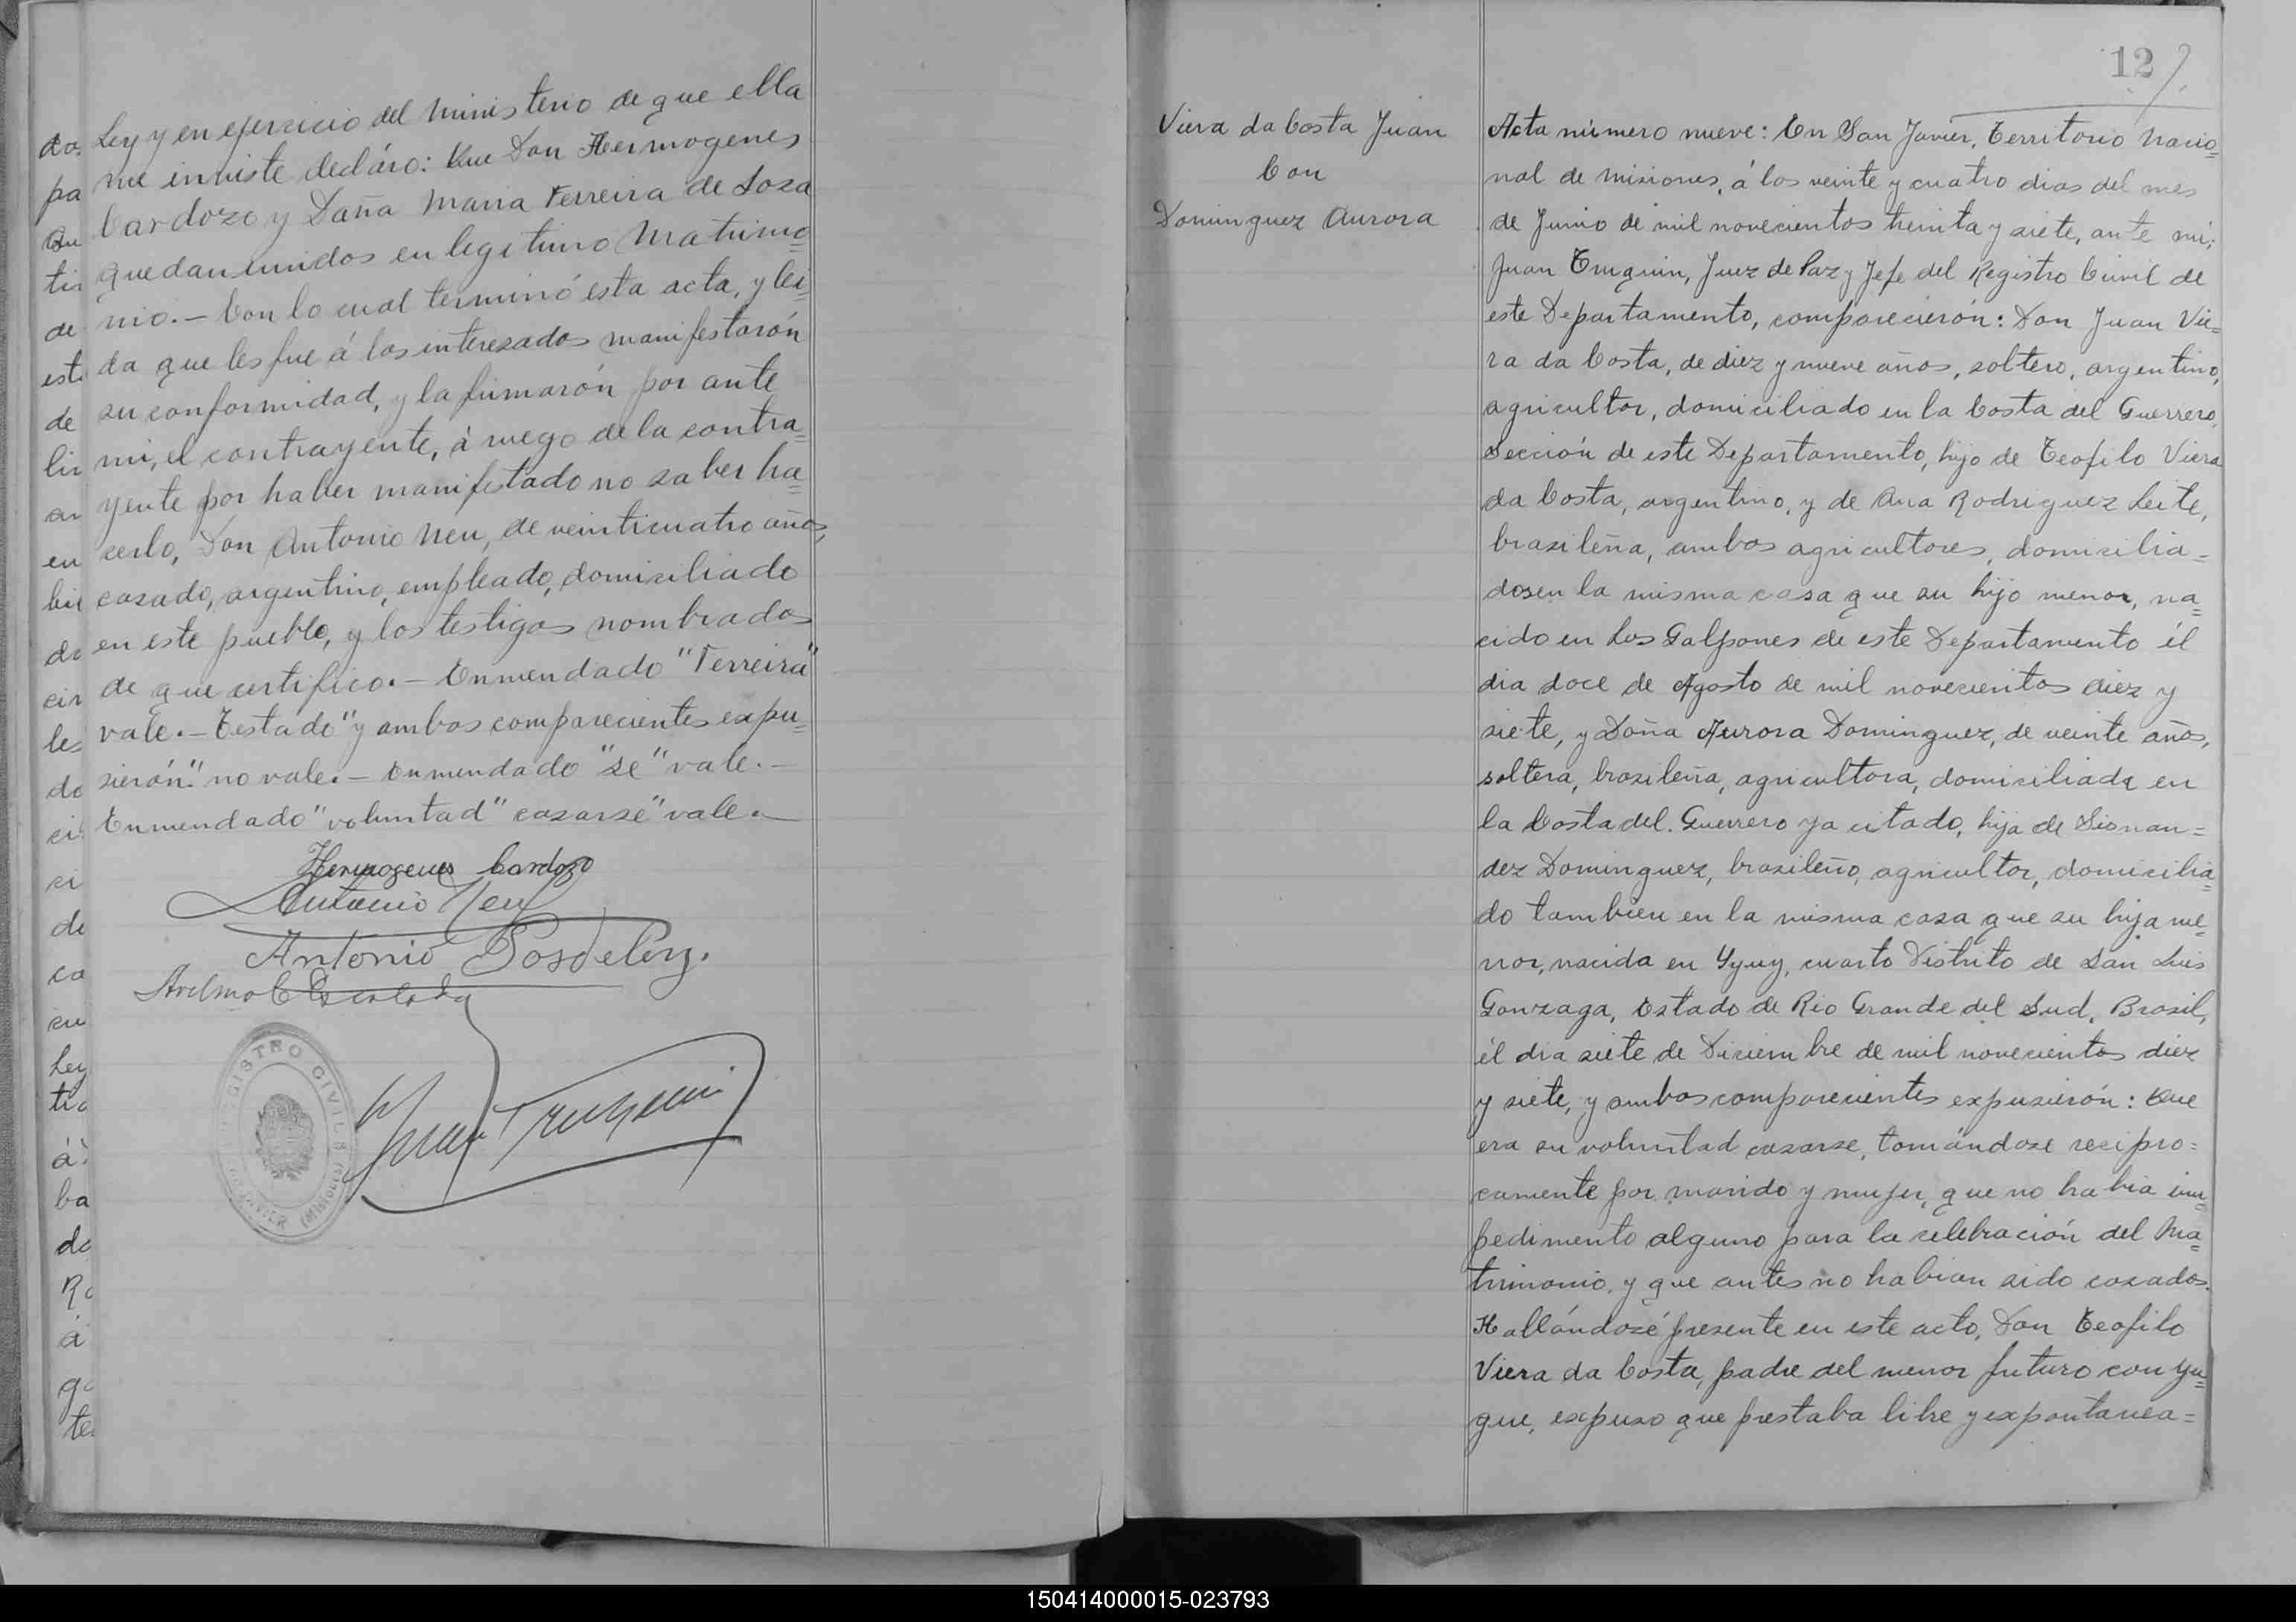 Ley y en ejercicio del ministerio de que ella
me inviste decláro: Que Don Hermogenes
Cardozo y Daña Maria Ferreira de Soza
quedan unidos en legitimo Matrimo=
nio.- Con lo cual terminó esta acta, y lei=
da que les fue á los interesados manifestarón
su conformidad, y la firmarón por ante
mi, el contrayente, á ruego de la contra=
yente por haber manifestado no saber ha=
cerlo, Don Antonio Neu, de veinticuatro años,
casado, argentino, empleado, domiciliado
en este pueblo, y los testigos nombrados
de que certifico.- Enmendado "Ferreira"
vale.- Testado "y ambos comparecientes expu=
sierón" no vale.- Enmendado "se" vale.-
Enmendado "voluntad" casarse" vale.-
Hermogenes Cardozo
Antonio Neu
Antonio
Juan Truquin
REGISTRO CIVIL
12
Viera da Costa Juan
Con
Dominguez Aurora
Acta número nueve: En San Javier, Territorio Nacio=
nal de Misiones, á los veinte y cuatro dias del mes
de Junio de mil novecientos treinta y siete, ante mi,
Juan Truquin, Juez de Paz y Jefe del Registro Civil de
este Departamento, comparecierón: Don Juan Vie=
ra da Costa, de diez y nueve años, soltero, argentino,
agricultor, domiciliado en la Costa del Guerrero,
Sección de este Departamento, hijo de Teofilo Viera
da Costa, argentino, y de Ana Rodriguez Leite,
brasileña, ambos agricultores, domicilia=
dos en la misma casa que su hijo menor, na=
cido en Los Galpones de este Departamento él
dia doce de Agosto de mil novecientos diez y
siete, y Doña Aurora Dominguez, de veinte años,
soltera, brasileña, agricultora, domiciliada en
la Costa del Guerrero ya citado, hija de Sisnan=
dez Dominguez, brasileño, agricultor, domicilia=
do tambien en la misma casa que su hija me=
nor, nacida en Yjuy, cuarto Distrito de San Luis
Gonzaga, Estado de Rio Grande del Sud, Brasil,
él dia siete de Diciembre de mil novecientos diez
y siete, y ambos comparecientes expusierón: Que
era su voluntad casarse, tomándose recipro=
camente por marido y mujer, que no habia im=
pedimento alguno para la celebración del Ma=
trimonio, y que antes no habian sido casados.
Hallándosé presente en este acto, Don Teofilo
Viera da Costa, padre del menor futuro conyu=
gue, expuso que prestaba libre y expontanea=
150414000015-023793